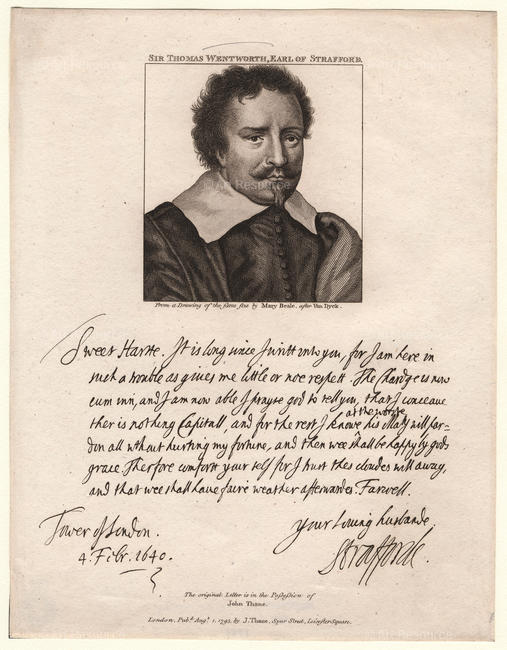 SIR THOMAS WENTWORTH, EARL OF STRAFFORD.
From a Drawing of the same size by MARY BEALE, after VAN DYCK.
Sweet Harte. It is long since I writt unto you, for I am here in
such a trouble as gives me little or noe respett. The Chardge is now
cum inn, and I am now able I prayse god to tell you, that I conceave
ther is nothing Capitall, and for the rest I knowe
at the worste
his Maty will par-
don all without hurting my fortune, and then wee shall be happy by gods
grace. Therfore comfort your self for I trust thes cloudes will away,
and that wee shall have faire weather afterwardes. Farewell.
Your loving husbande
Tower of London.
4. Febr. 1640.
Strafforde.
The original Letter is in the Possession of
JOHN THANE.
London, Pub.d Aug.t 1, 1792, by J. Thane, Spur Street, Leicester Square.